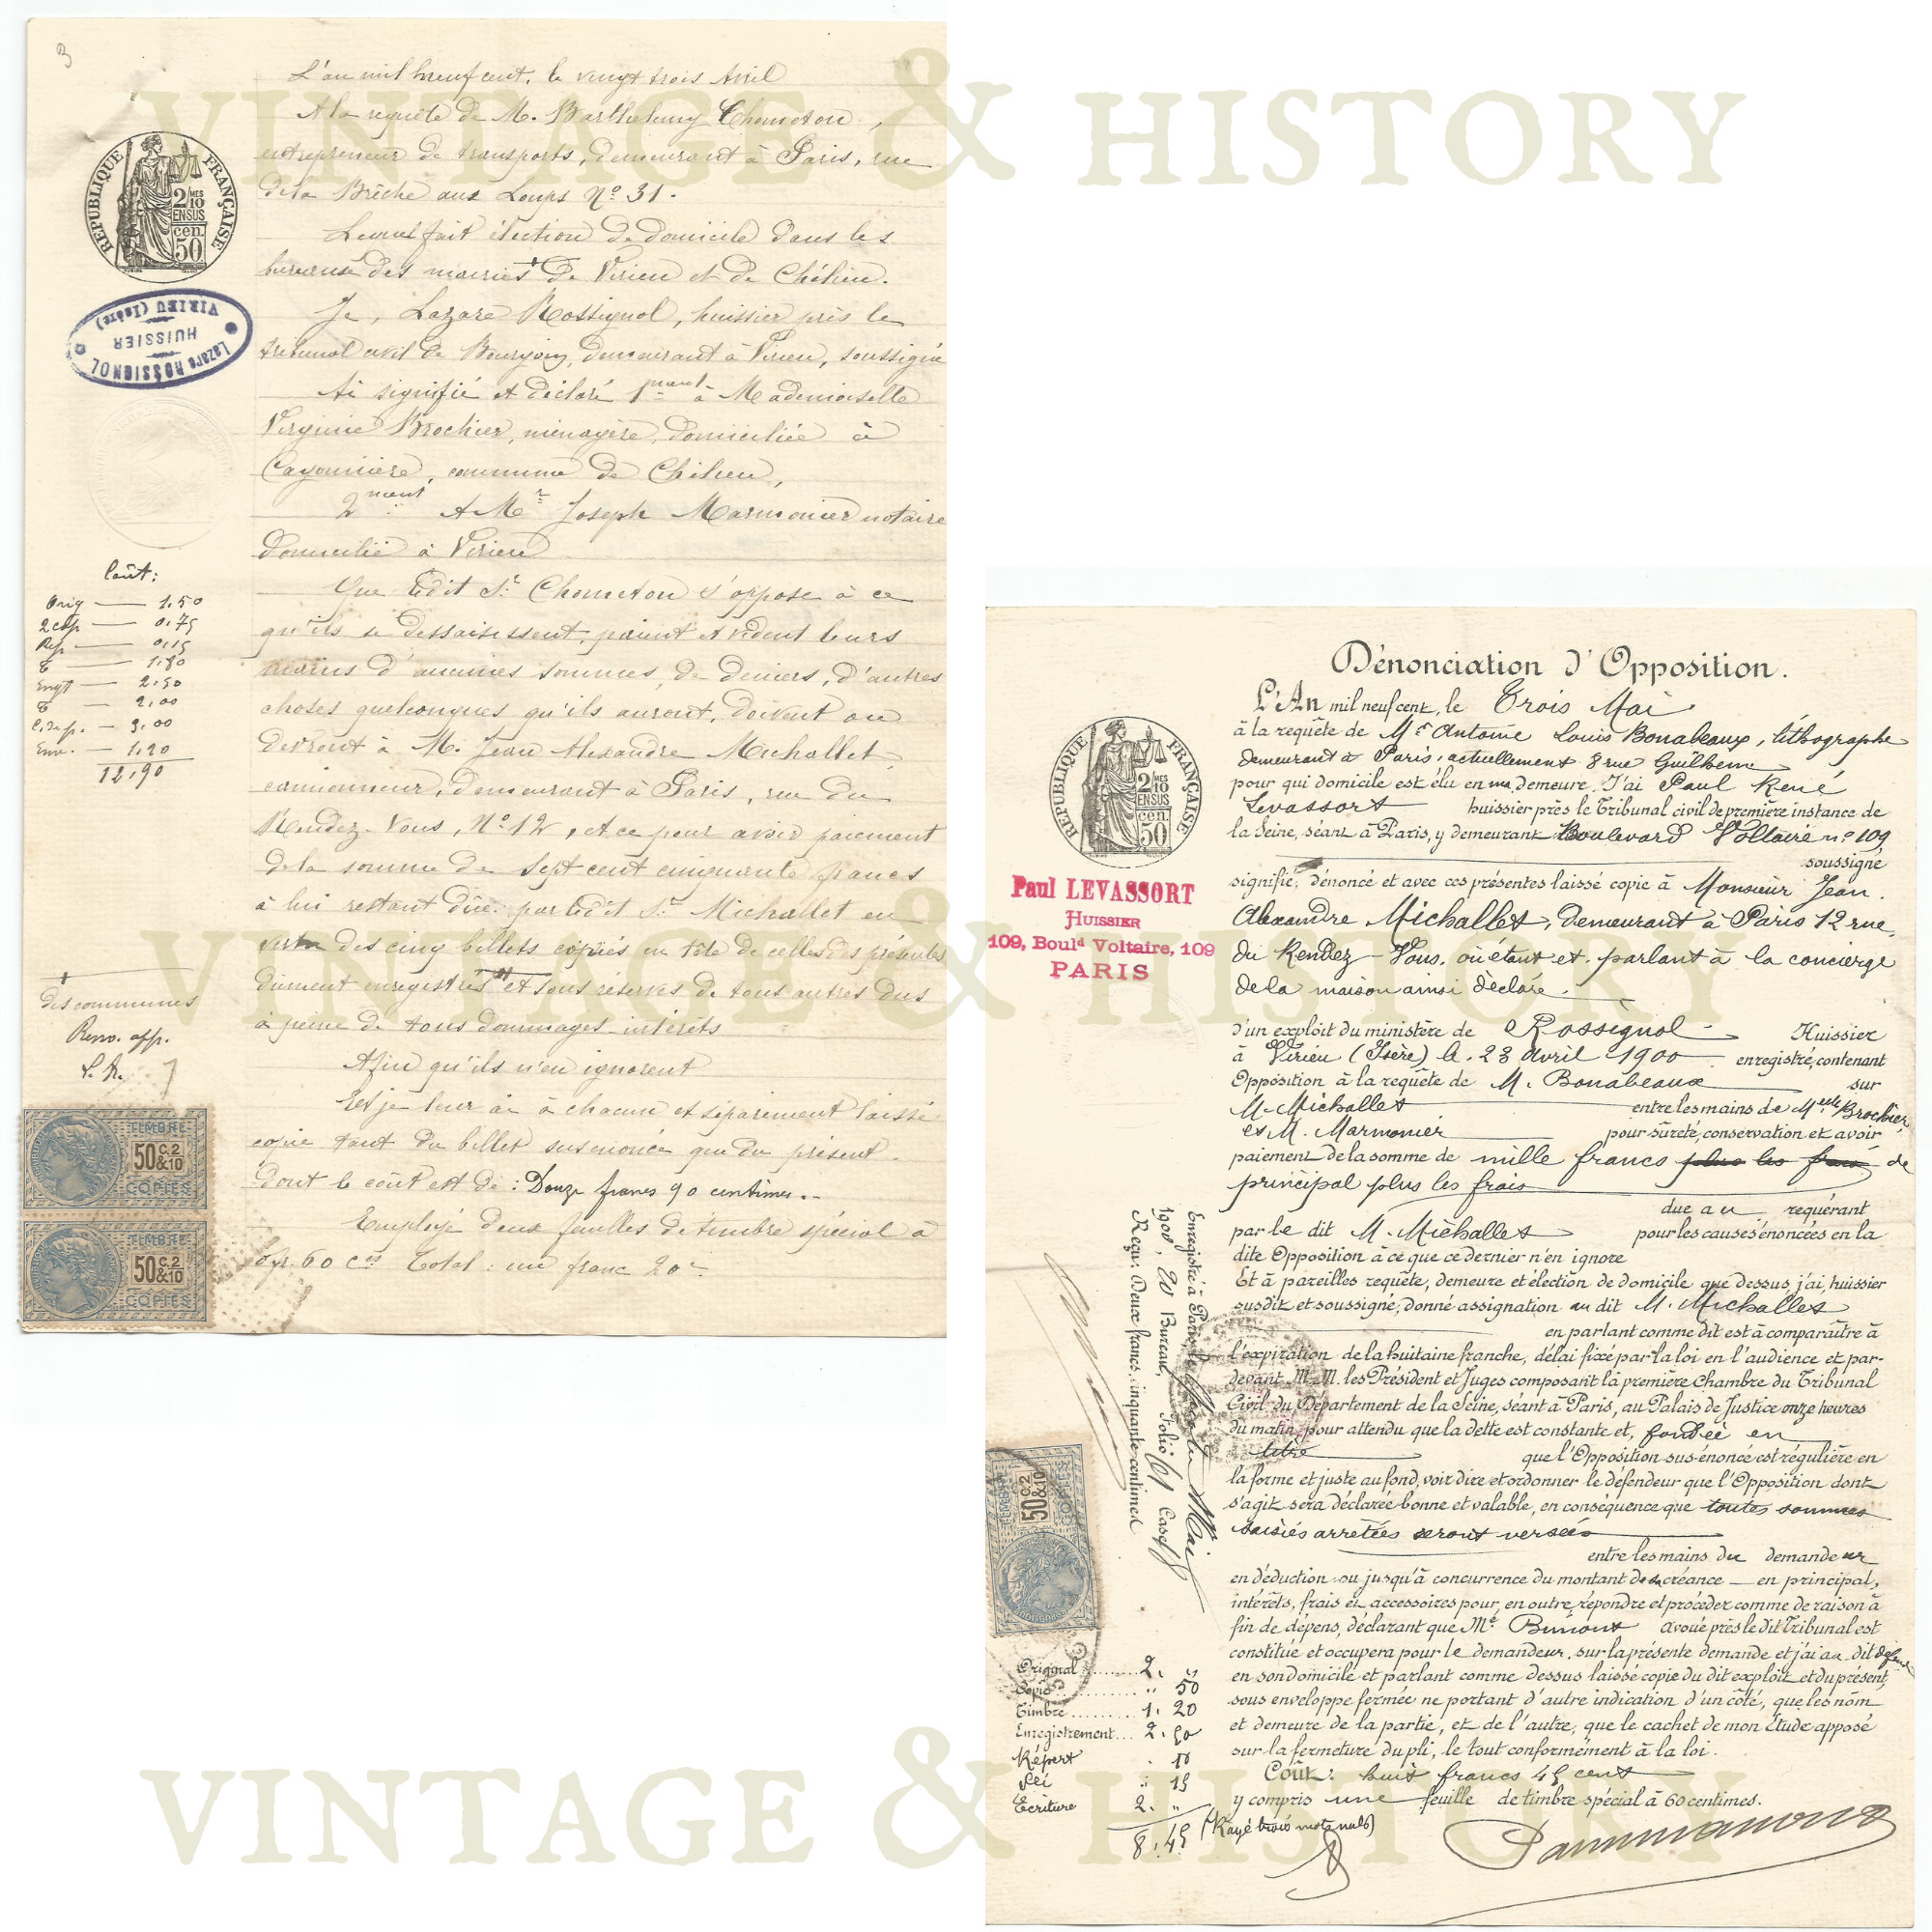 VINTAGE & HISTORY
3
L'an mil neuf cent, le vingt trois Avril
A la requête de M. Barthelemy Chometon,
entrepreneur de transports, demeurant à Paris, rue
de la Brêche aux Loups Nº 31.
Lequel fait élection de domicile dans les
bureaux des mairies + de Virieu et de Chélieu.
Je, Lazare Rossignol, huissier près le
tribunal civil de Bourgoin, demeurant à Virieu, soussigné
Ai signifié et déclaré 1ment à Mademoiselle
Virginie Brochier, ménagère, domiciliée à
Cayonnière, commune de Chélieu,
2ment A Mr Joseph Marmonier notaire
domicilié à Virieu
Que ledit Sr Chometon s'oppose à ce
qu'ils se dessaisissent, paient et vident leurs
mains d'aucunes sommes, de deniers, d'autres
choses quelconques qu'ils auront, doivent ou
devront à M. Jean Alexandre Michallet,
camionneur, demeurant à Paris, rue du
Rendez-Vous, Nº 12, et ce pour avoir paiement
de la somme de Sept cent cinquante francs
à lui restant due par ledit Sr Michallet en
vertu des cinq billets copiés en tête de celles des présentes
dûment enregistrés et sous réserves de tous autres dus
à peine de tous dommages-intérêts
Afin qu'ils n'en ignorent
Et je leur ai à chacun et séparément laissé
copie tant du billet susénoncé que du présent.
Dont le coût est de : Douze francs 90 centimes.-
Employé deux feuilles de timbre spécial à
0fr. 60 ces Total : un franc 20c
RÉPUBLIQUE FRANÇAISE
2 MES
10
EN SUS
cen.
50
Lazare ROSSIGNOL
HUISSIER
VIRIEU (Isère)
Coût:
Orig — 1.50
2 cop — 0.75
Rep — 0.15
T — 1.80
Engt — 2.50
T — 2,00
C. de p. — 3.00
Env. — 1.20
12,90
+
des communes
Renv. app.
L. R.
TIMBRE
50 C. 2
& 10
COPIES
TIMBRE
50 C. 2
& 10
COPIES
Dénonciation d'Opposition.
L'An mil neuf cent, le Trois Mai
à la requête de Mr Antoine Louis Bonabeaux, lithographe
demeurant à Paris, actuellement 8 rue Guilhem
pour qui domicile est élu en ma demeure. J'ai Paul René
Levassort huissier près le Tribunal civil de première instance de
la Seine, séant à Paris, y demeurant Boulevard Voltaire nº 109
soussigné
signifié, dénoncé et avec ces présentes laissé copie à Monsieur Jean
Alexandre Michallet, demeurant à Paris 12 rue
du Rendez-Vous, où étant et parlant à la concierge
de la maison ainsi déclaré.
d'un exploit du ministère de Rossignol Huissier
à Virieu (Isère) le 23 avril 1900 enregistré, contenant
Opposition à la requête de M. Bonabeaux sur
M. Michallet entre les mains de Melle Brochier
et M. Marmonier pour sûreté, conservation et avoir
paiement de la somme de mille francs plus les frais de
principal plus les frais
due au requérant
par le dit M. Michallet pour les causes énoncées en la
dite Opposition à ce que ce dernier n'en ignore
Et à pareilles requête, demeure et élection de domicile que dessus, j'ai, huissier
susdit et soussigné, donné assignation au dit M. Michallet
en parlant comme dit est à comparaître à
l'expiration de la huitaine franche, délai fixé par la loi en l'audience et par-
devant M.M. les Président et Juges composant la première Chambre du Tribunal
Civil du Département de la Seine, séant à Paris, au Palais de Justice onze heures
du matin, pour attendu que la dette est constante et, fondée en
titre que l'Opposition sus-énoncé est régulière en
la forme et juste au fond, voir dire et ordonner le défendeur que l'Opposition dont
s'agit sera déclarée bonne et valable, en conséquence que toutes sommes
saisies arretées seront versées
entre les mains du demandeur
en déduction ou jusqu'à concurrence du montant de sa créance — en principal,
intérêts, frais et accessoires pour, en outre, répondre et procéder comme de raison à
fin de dépens, déclarant que Me avoué près le dit Tribunal est
constitué et occupera pour le demandeur, sur la présente demande et j'ai au dit
en son domicile et parlant comme dessus laissé copie du dit exploit et du présent,
sous enveloppe fermée ne portant d'autre indication d'un côté, que les nom
et demeure de la partie, et de l'autre, que le cachet de mon Étude apposé
sur la fermeture du pli, le tout conformément à la loi.
Coût: huit francs 45 cent
y compris une feuille de timbre spécial à 60 centimes.
(Rayé trois mots nuls)
RÉPUBLIQUE FRANÇAISE
2 MES
10
EN SUS
cen.
50
Paul LEVASSORT
HUISSIER
109, Bould Voltaire, 109
PARIS
Enregistré à Paris, le Mai
1900, 20 Bureau, Folio Case
Reçu: Deux francs, cinquante centimes
TIMBRE
50 C. 2
& 10
COPIES
Original ...... 2. "
Copie ...... " 50
Timbre ...... 1. 20
Enregistrement ... 2. 50
Répert . 10
" 15
Écriture 2. "
8.45
VINTAGE & HISTORY
VINTAGE & HISTORY